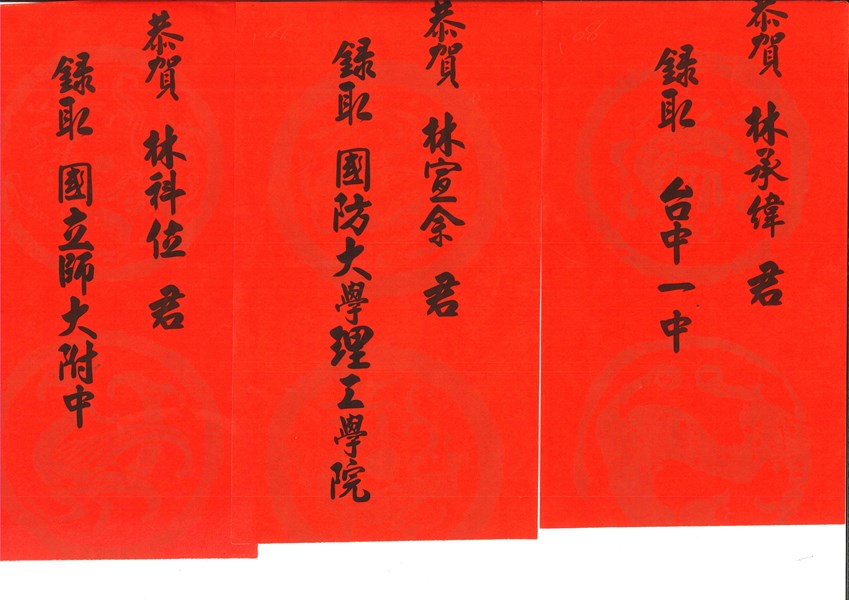 恭賀 林承緯 君
錄取 台中一中
恭賀 林宣余 君
錄取 國防大學理工學院
恭賀 林科位 君
錄取 國立師大附中